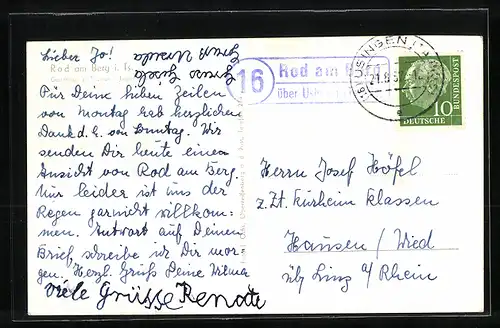 Lieber Jo!
Gruß Ursula
Gruss Gisela
Rod am Berg i. Ts.
Für Deine lieben Zeilen
von Montag hab herzlichen
Dank d. h. von Sonntag. Wir
senden Dir heute eine
Ansicht von Rod am Berg.
Nur leider ist uns der
Regen garnicht willkom-
men. Antwort auf Deinen
Brief, schreibe ich Dir mor-
gen. Herzl. Gruß Deine Wilma
Viele Grüsse Renate
16 Rod am Berg
über Usingen
(16) USINGEN (TAUNUS)
21.8.5
10
DEUTSCHE BUNDESPOST
Herrn Josef Höfel
z. Zt. Kurheim Klassen
Hausen / Wied
üb/ Linz a/Rhein